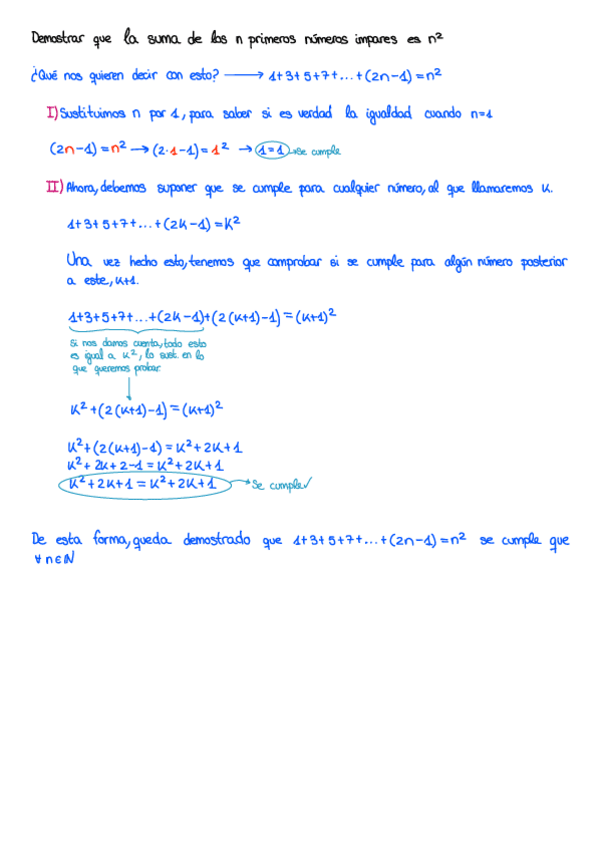 Demostrar que la suma de los n primeros números impares es n²
¿Qué nos quieren decir con esto? ⟶ 1+3+5+7+...+(2n-1)=n²
I) Sustituimos n por 1, para saber si es verdad la igualdad cuando n=1
(2n-1)=n² → (2·1-1)=1² → 1=1 → se cumple
II) Ahora, debemos suponer que se cumple para cualquier número, al que llamaremos K.
1+3+5+7+...+(2K-1)=K²
Una vez hecho esto, tenemos que comprobar si se cumple para algún número posterior
a este, K+1.
1+3+5+7+...+(2K-1)+(2(K+1)-1)=(K+1)²
Si nos damos cuenta, todo esto
es igual a K², lo sust. en lo
que queremos probar
K²+(2(K+1)-1)=(K+1)²
K²+(2(K+1)-1)=K²+2K+1
K²+2K+2-1=K²+2K+1
K²+2K+1=K²+2K+1 → Se cumple✓
De esta forma, queda demostrado que 1+3+5+7+...+(2n-1)=n² se cumple que
∀n∈ℕ